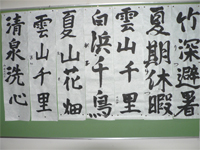 竹深避暑
夏期休暇
雲山千里
白浜千鳥
夏山花畑
雲山千里
清泉洗心